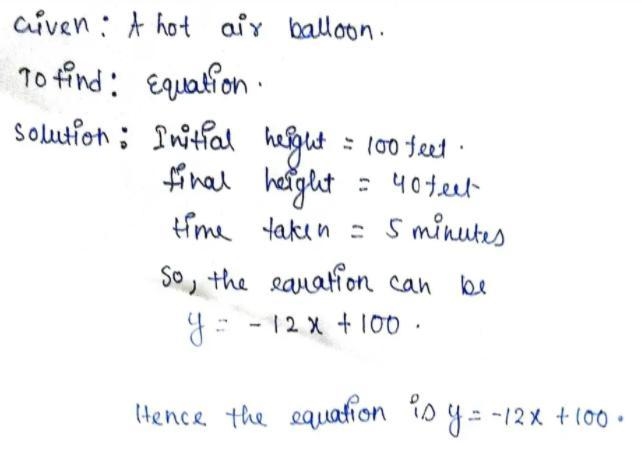 Given: A hot air balloon.
To find: Equation.
Solution: Initial height = 100 feet.
final height = 40 feet
time taken = 5 minutes
So, the equation can be
y = -12x + 100.
Hence the equation is y = -12x + 100.